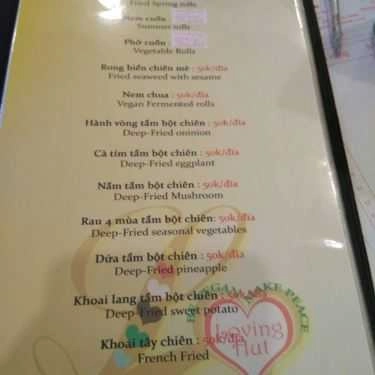 Fried Spring rolls
Nem cuốn :
Summer rolls
Phở cuốn :
Vegetable Rolls
Rong biển chiên mè : 50k/đĩa
Fried seaweed with sesame
Nem chua : 50k/đĩa
Vegan Fermented rolls
Hành vòng tẩm bột chiên : 50k/đĩa
Deep-Fried oninion
Cà tím tẩm bột chiên : 50k/đĩa
Deep-Fried eggplant
Nấm tẩm bột chiên : 50k/đĩa
Deep-Fried Mushroom
Rau 4 mùa tẩm bột chiên: 50k/đĩa
Deep-Fried seasonal vegetables
Dứa tẩm bột chiên : 50k/đĩa
Deep-Fried pineapple
Khoai lang tẩm bột chiên :
Deep-Fried sweet potato
Khoai tây chiên : 50k/đĩa
French Fried
MAKE PEACE
Loving
Hut